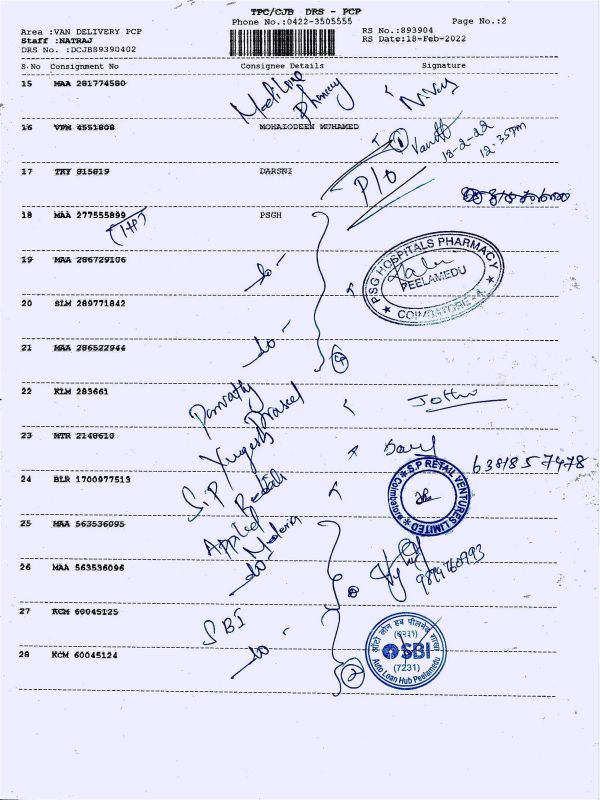 TPC/CJB DRS - PCP
Phone No.:0422-3505555 Page No.:2
Area :VAN DELIVERY PCP RS No.:893904
Staff :NATRAJ RS Date:18-Feb-2022
DRS No. :DCJB89390402
S.No Consignment No Consignee Details Signature
15 MAA 281774580 Medilone Pharmacy
16 VPM 4551808 MOHAIODEEN MUHAMED
18-2-22
12.35pm
17 TRY 815819 DARSNI P/O
18 MAA 277555899 PSGH
PSG HOSPITALS PHARMACY
PEELAMEDU
COIMBATORE-4
19 MAA 286729106 -do-
20 SLM 289771842
21 MAA 286522944 -do-
4
22 KLM 283661 Parvathy Jothi
23 MTR 2148610 Yugesh Prasad
6381857478
24 BLR 1700977513 S.P Retail
S.P RETAIL VENTURES LIMITED
Coimbatore
25 MAA 563536095 Applied Materia
26 MAA 563536096 -do-
9894760993
27 KCM 60045125 SBI
28 KCM 60045124 -do- 2
(७२३१)
SBI
(7231)
Auto Loan Hub Peelamedu